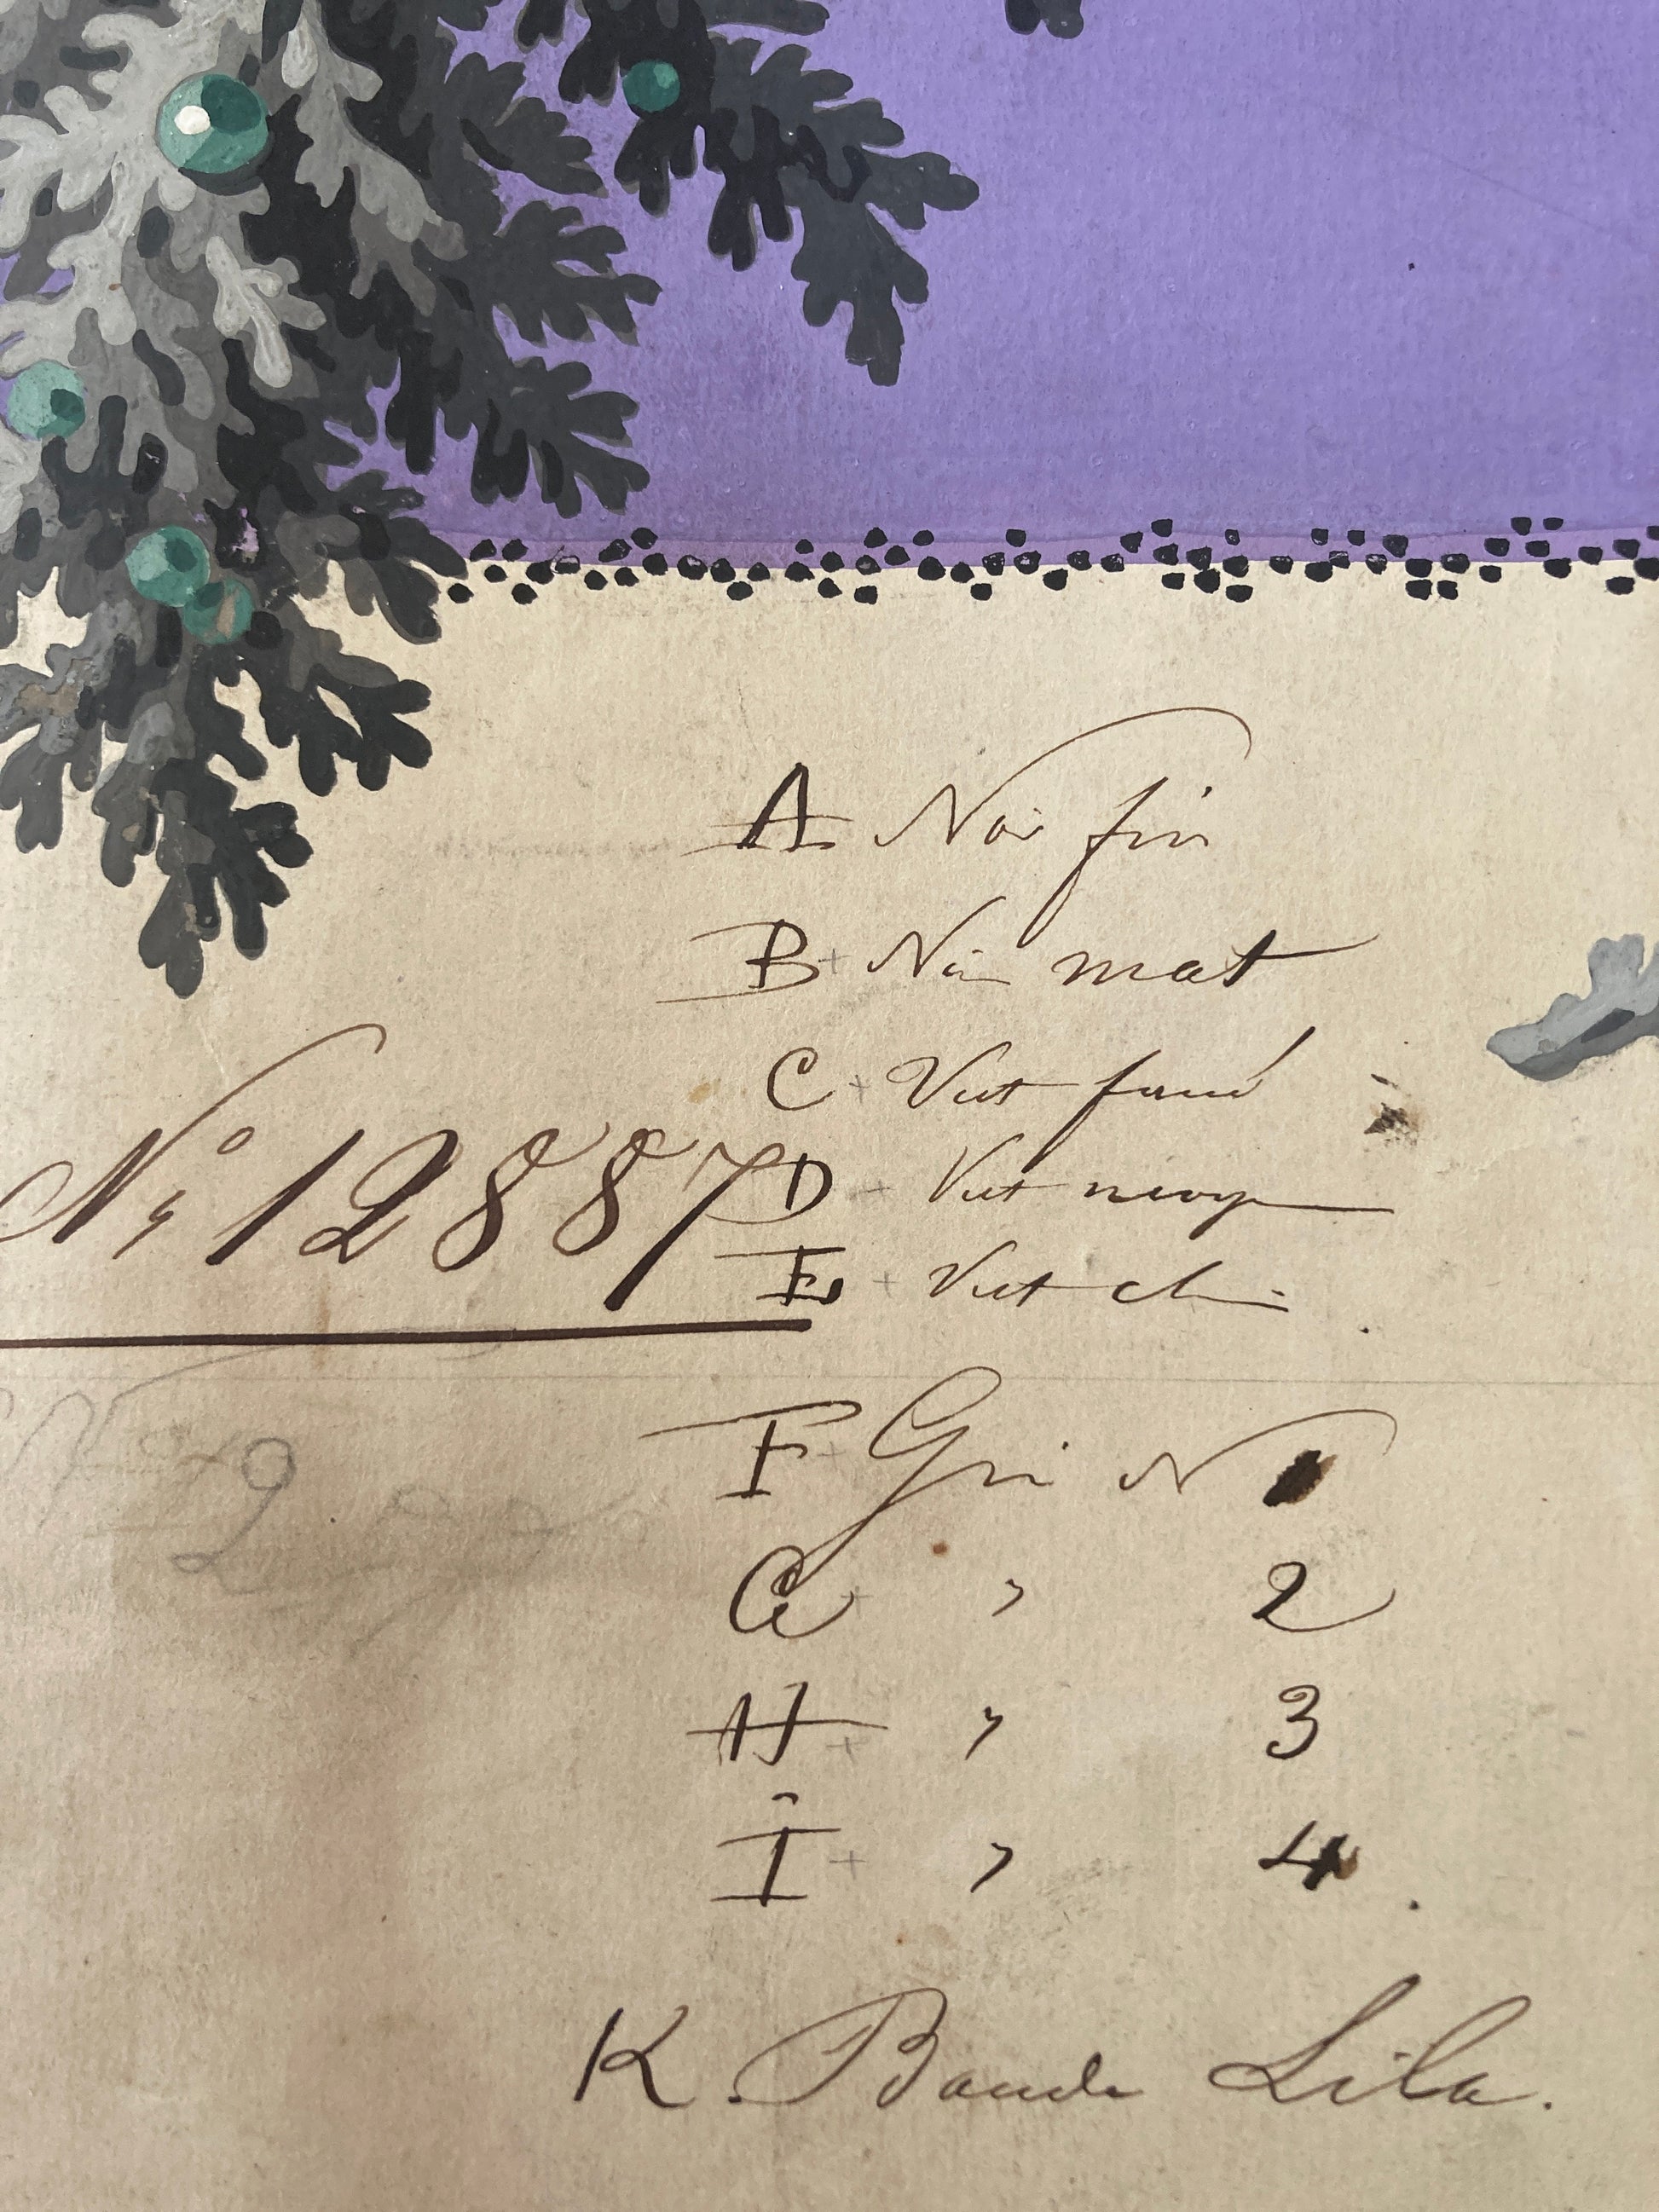 A Noir fin
B + Noir mat
C + Vert foncé
Nº 12887
D - Vert moyen
E + Vert clair
F + Gris N 1
G + " 2
H + " 3
I + " 4
K. Bande Lila.